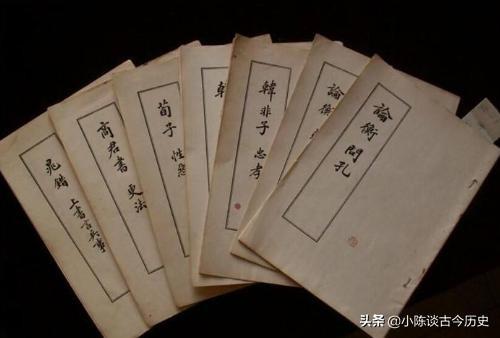 論衡 問孔
論衡
韓非子 忠孝
韓
荀子 性惡
商君書 更法
晁錯 上書言兵事
头条 @小陈谈古今历史